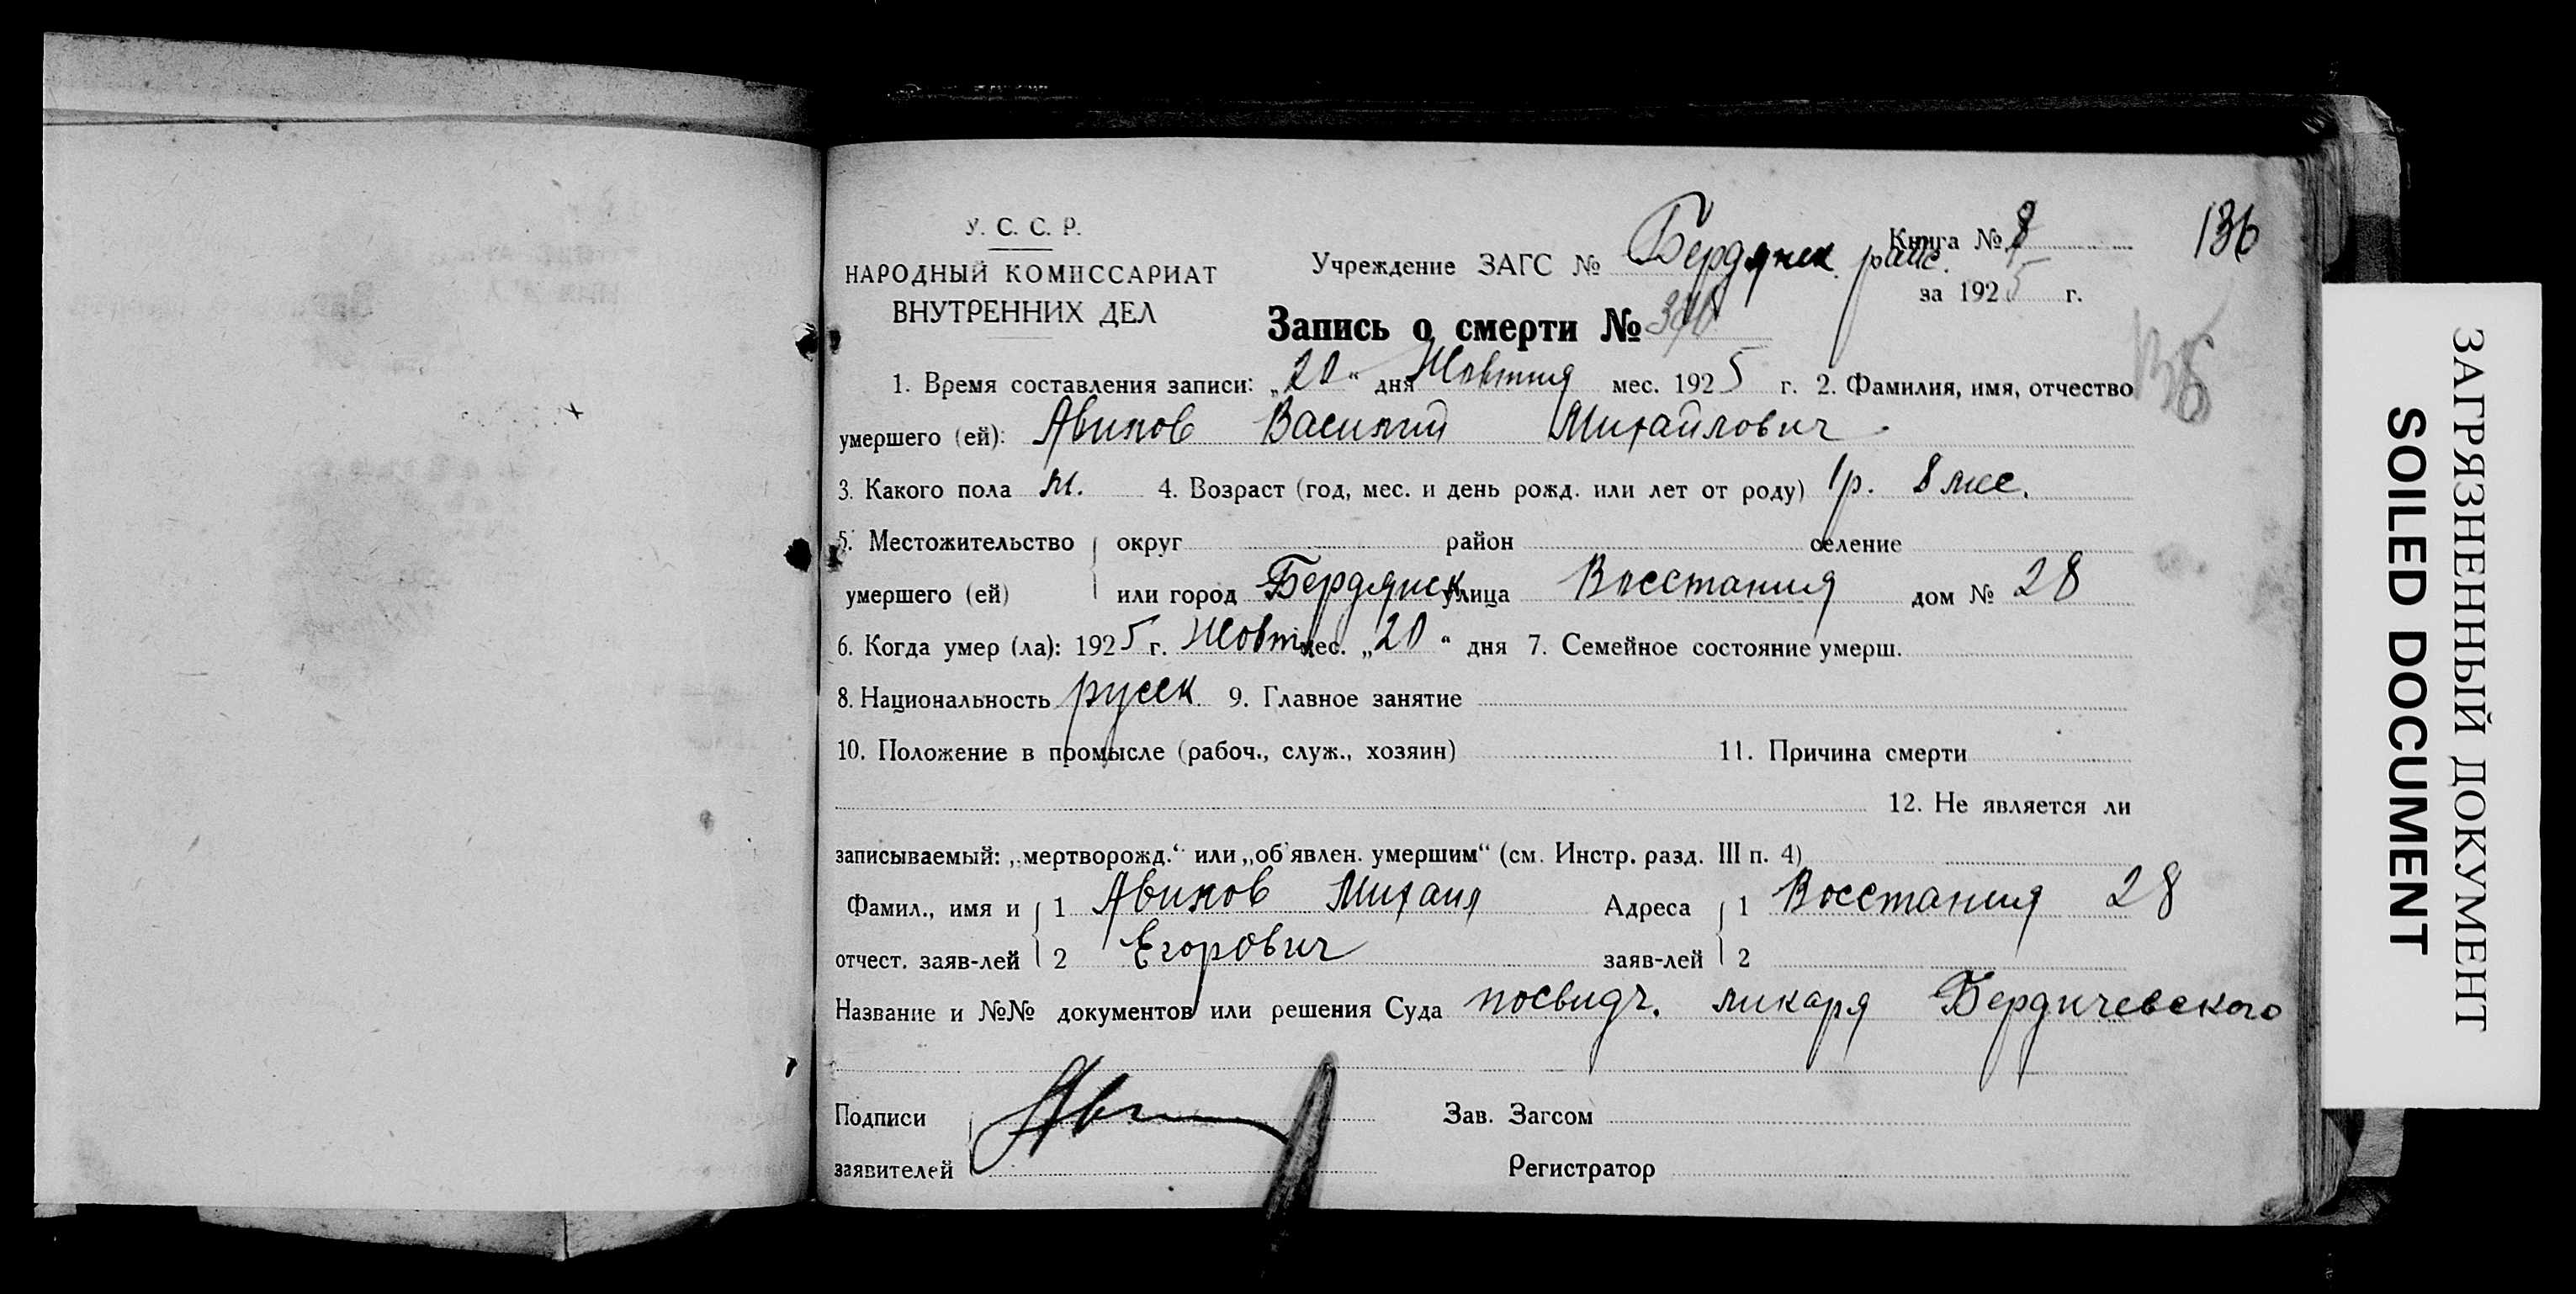 136
У. С. С. Р.
НАРОДНЫЙ КОМИССАРИАТ
ВНУТРЕННИХ ДЕЛ
Учреждение ЗАГС № Бердянск. райс.
Книга № 8
за 1925 г.
Запись о смерти №
1. Время составления записи: „20“ дня Жовтня мес. 1925 г. 2. Фамилия, имя, отчество
умершего (ей): Авилов Василий Михайлович
3. Какого пола м. 4. Возраст (год, мес. и день рожд. или лет от роду) 1р. 8 мес.
5. Местожительство округ район селение
умершего (ей) или город Бердянск улица Восстания дом № 28
6. Когда умер (ла): 1925 г. Жовтн мес. „20“ дня 7. Семейное состояние умерш.
8. Национальность русск. 9. Главное занятие
10. Положение в промысле (рабоч., служ., хозяин) 11. Причина смерти
12. Не является ли
записываемый: „мертворожд.“ или „об'явлен. умершим“ (см. Инстр. разд. III п. 4)
Фамил., имя и 1 Авилов Михаил Адреса 1 Восстания 28
отчест. заяв-лей 2 Егорович заяв-лей 2
Название и №№ документов или решения Суда посвидч. ликаря Бердичевского
Подписи Зав. Загсом
заявителей Регистратор
ЗАГРЯЗНЕННЫЙ ДОКУМЕНТ
SOILED DOCUMENT